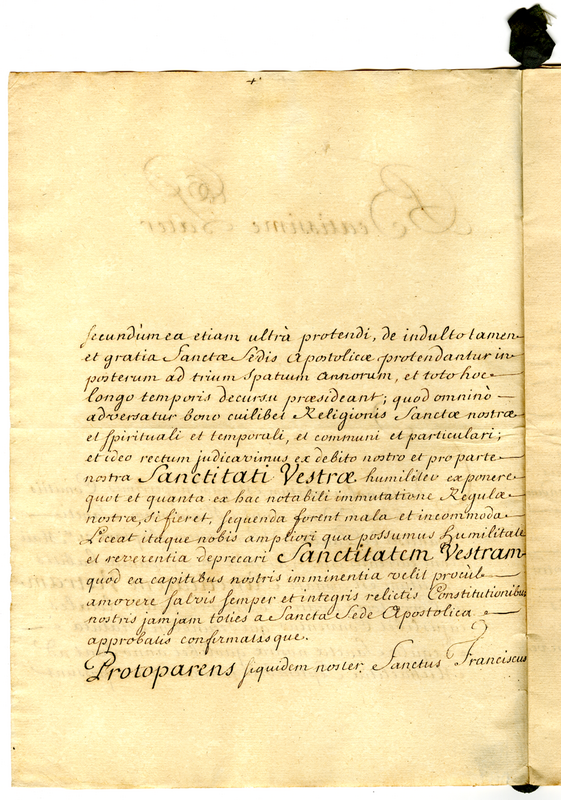 secundùm ea etiam ultrà protendi, de indulto tamen
et gratia Sanctæ Sedis Apostolicæ protendantur in
posterum ad trium spatium annorum, et toto hoc
longo temporis decursu præsideant; quod omninò
adversatur bono cuilibet Religionis Sanctæ nostræ
et spirituali et temporali, et communi et particulari;
et ideo rectum judicavimus ex debito nostro et pro parte
nostra Sanctitati Vestræ humiliter exponere
quot et quanta ex hac notabili immutatione Regulæ
nostræ, si fieret, sequenda forent mala et incommoda
Liceat itaque nobis ampliori qua possumus humilitate
et reverentia deprecari Sanctitatem Vestram
quod ea capitibus nostris imminentia velit procùl
amovere salvis semper et integris relictis Constitutionibus
nostris jamjam toties a Sancta Sede Apostolica
approbatis confirmatisque.
Protoparens siquidem noster Sanctus Franciscus